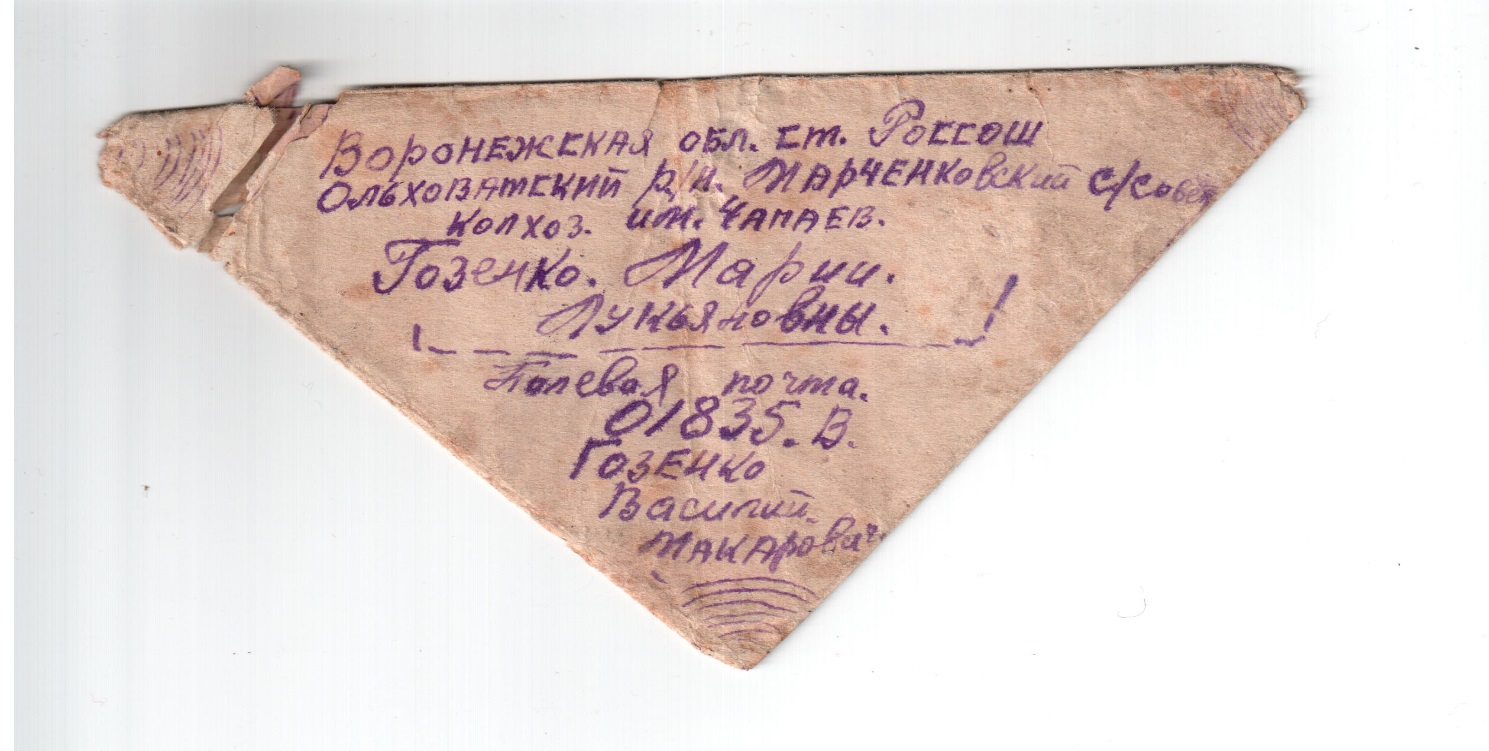 Воронежская обл. ст. Россош
Ольховатский р/н. Марченковский с/совет
колхоз. им. Чапаев.
Гозенко. Марии.
Лукьяновны.
Полевая почта.
01835. В.
Гозенко
Василий.
Макарович.